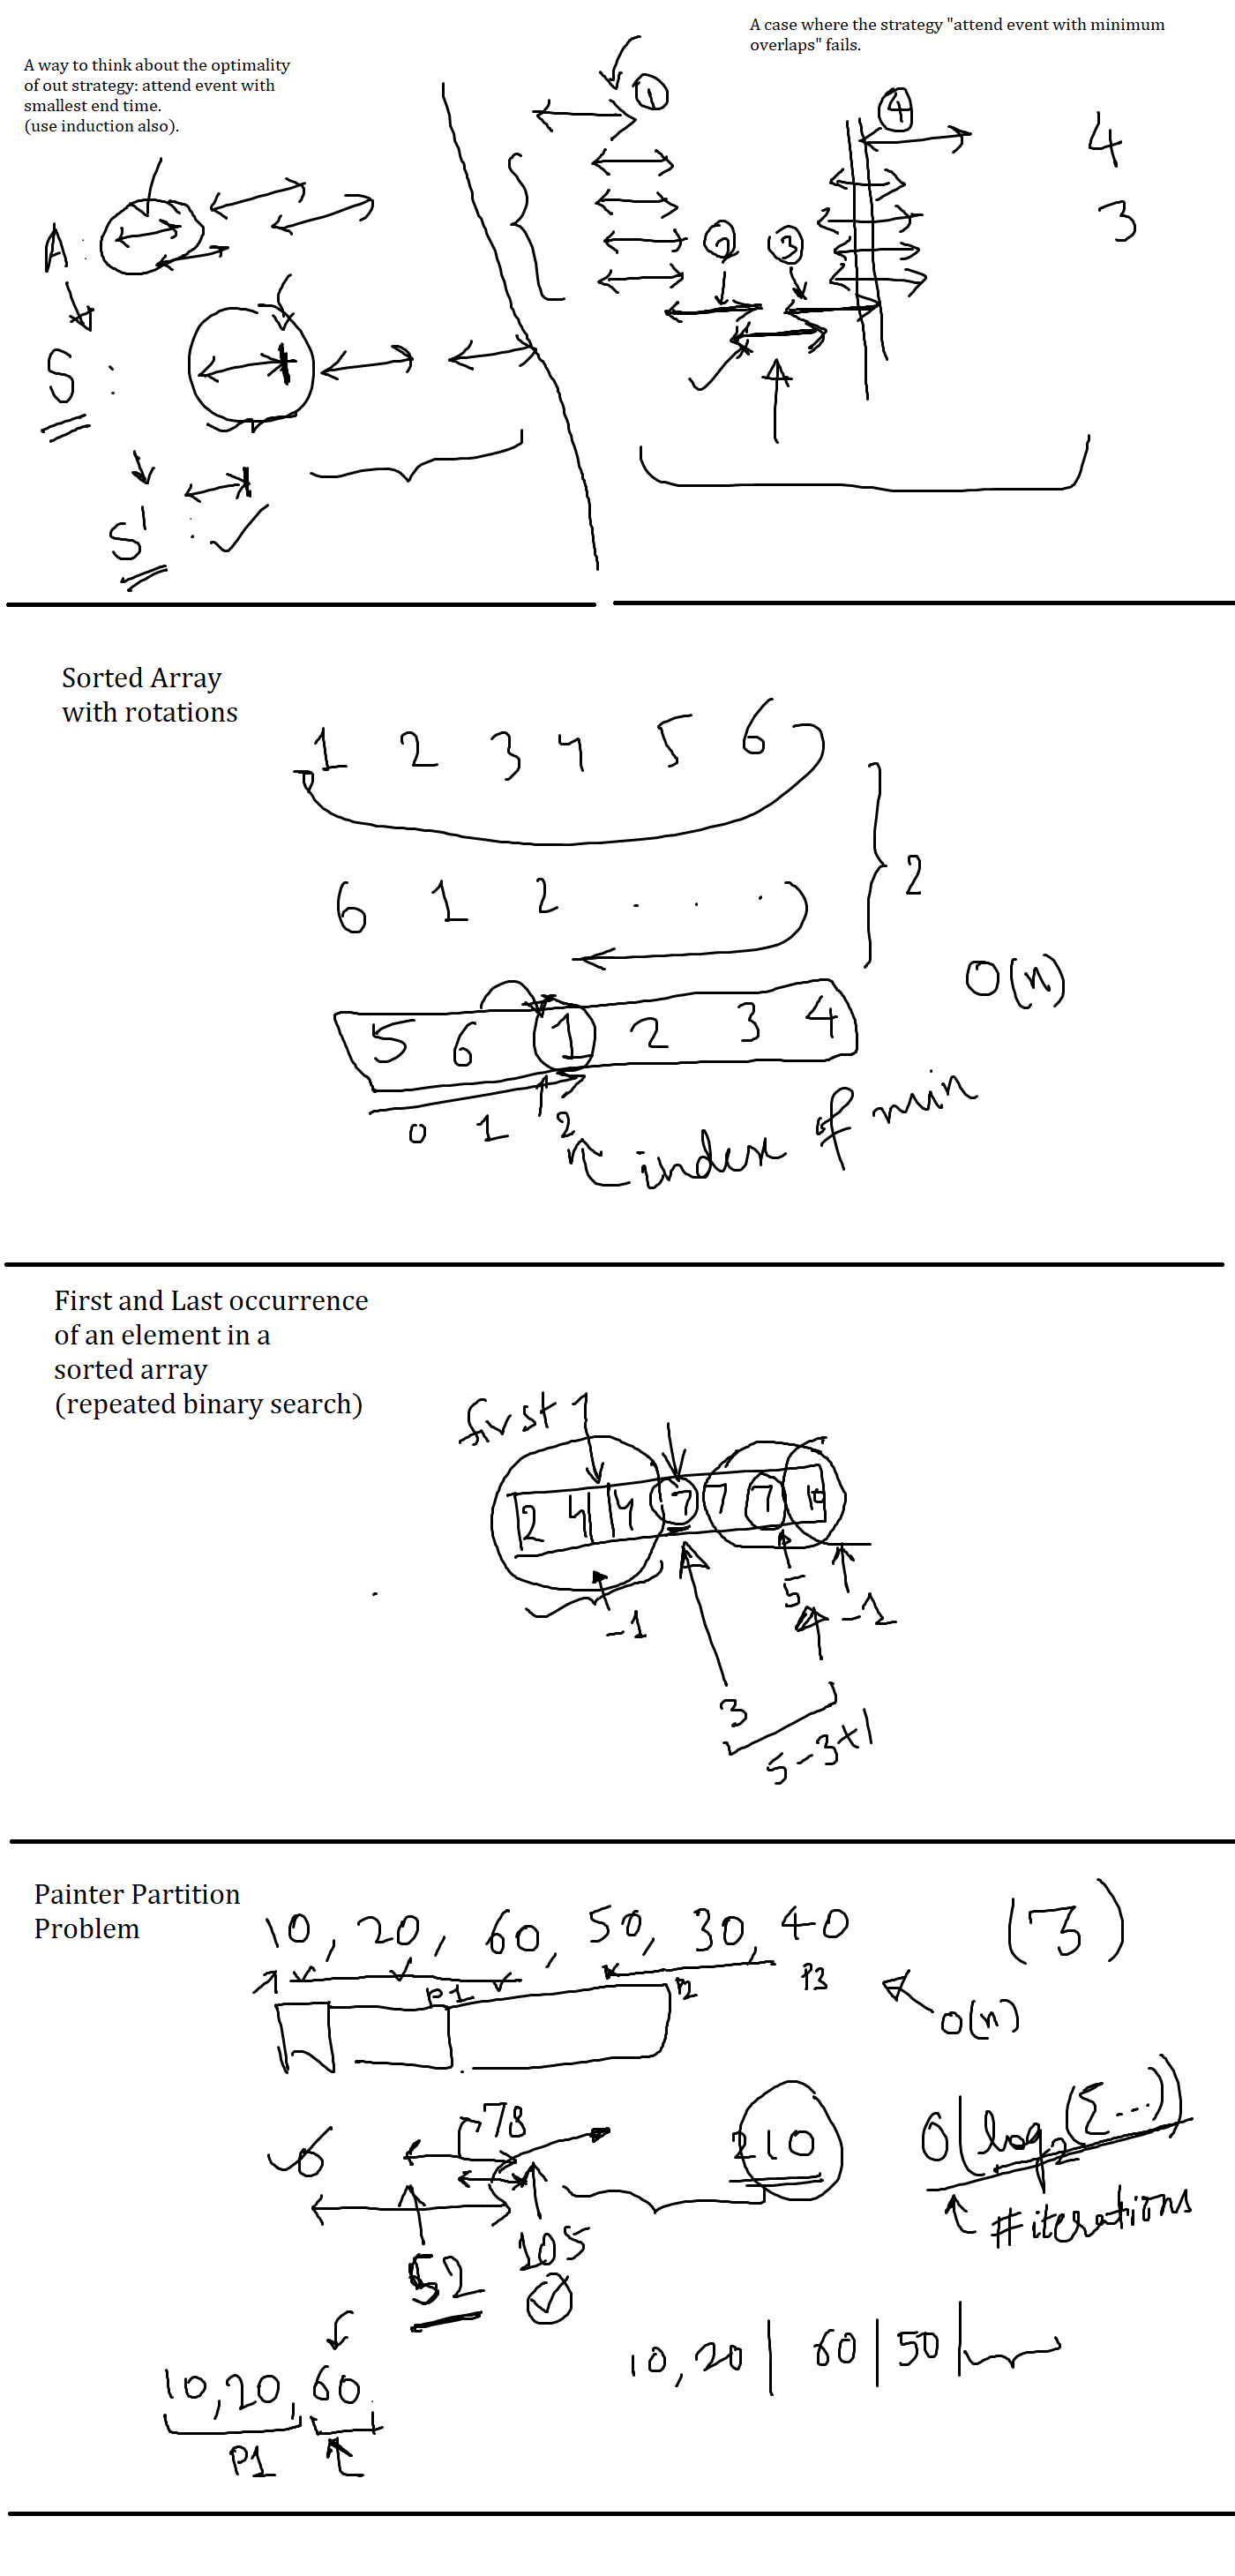 A way to think about the optimality
of out strategy: attend event with
smallest end time.
(use induction also).
A :
S :
S' :
A case where the strategy "attend event with minimum
overlaps" fails.
1
4
4
3
2 3
Sorted Array
with rotations
1 2 3 4 5 6
2
6 1 2 . . .
O(n)
5 6 1 2 3 4
0 1 2
index of min
First and Last occurrence
of an element in a
sorted array
(repeated binary search)
first
2 4 4 7 7 7 10
-1
5
-1
3
5-3+1
Painter Partition
Problem
10, 20, 60, 50, 30, 40
(3)
P1 P2 P3
O(n)
78
210
O(log2(Σ...))
#iterations
105
52
10, 20 | 60 | 50 |
10, 20, 60
P1